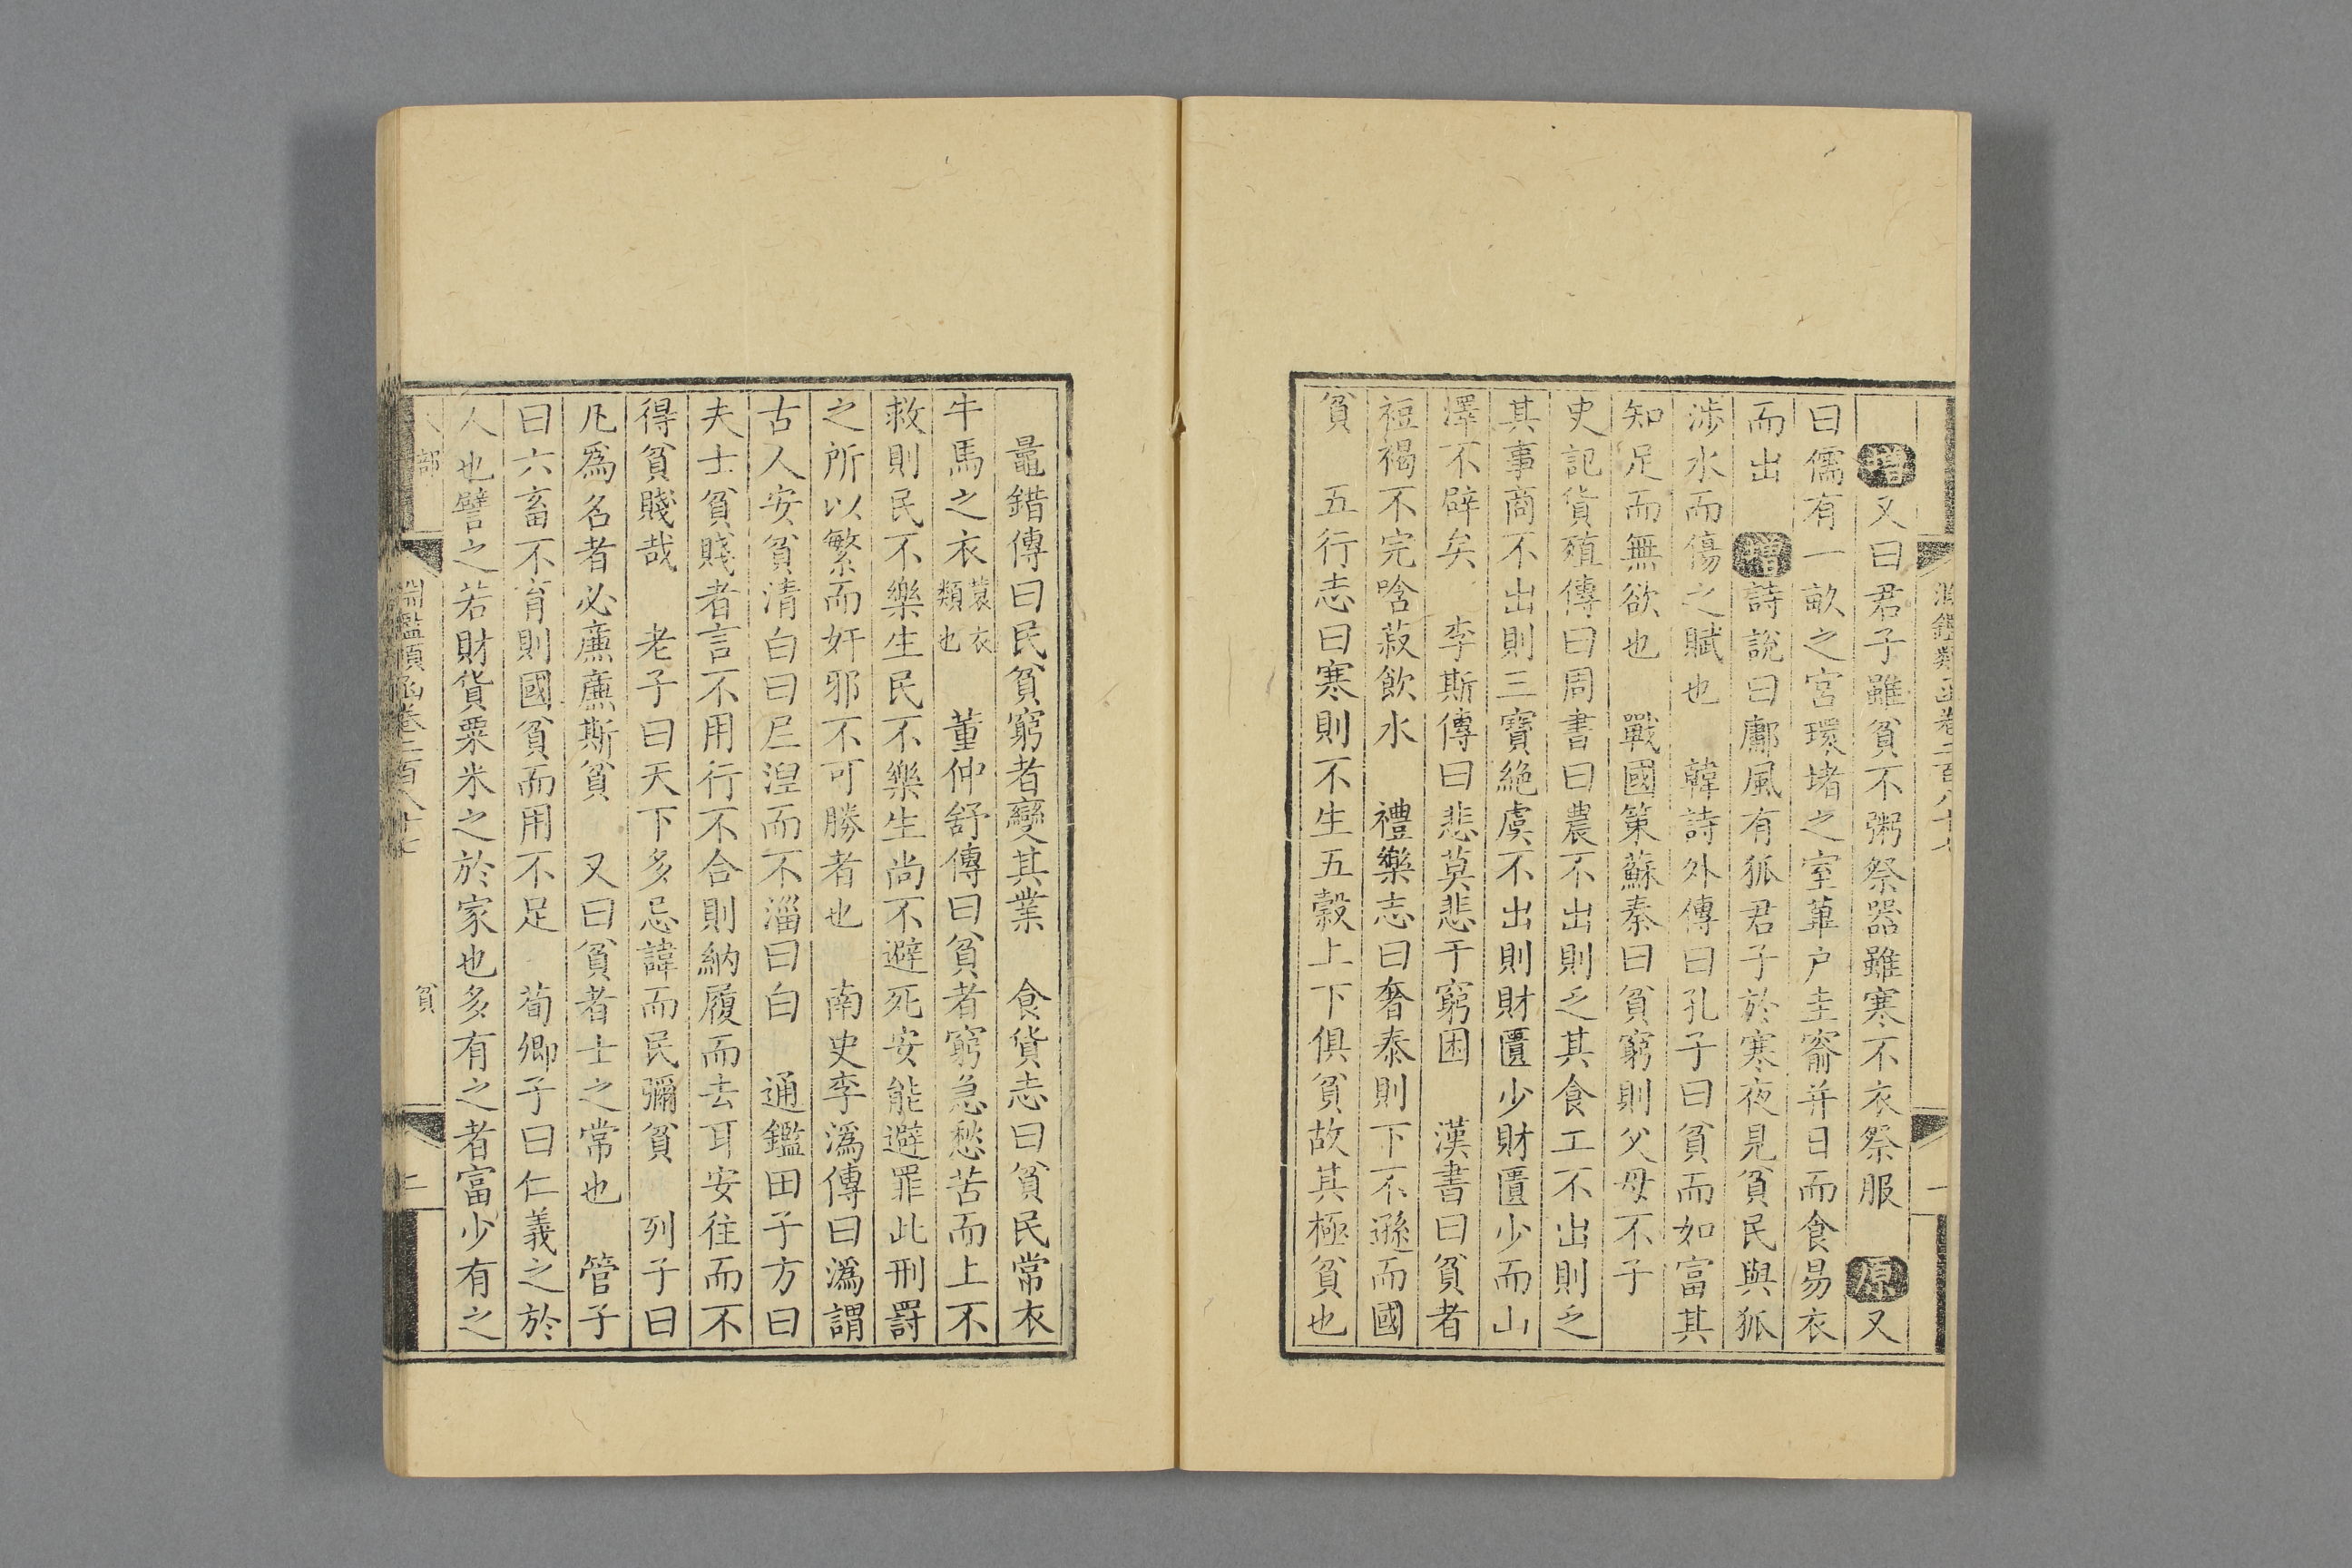 淵鑑類函卷二百八十七
增又曰君子雖貧不粥祭器雖寒不衣祭服 原又
曰儒有一畝之宮環堵之室蓽户圭窬并日而食易衣
而出 增詩說曰鄘風有狐君子於寒夜見貧民與狐
涉水而傷之賦也 韓詩外傳曰孔子曰貧而如富其
知足而無欲也 戰國策蘇秦曰貧窮則父母不子
史記貨殖傳曰周書曰農不出則乏其食工不出則乏
其事商不出則三寶絶虞不出則財匱少財匱少而山
澤不辟矣 李斯傳曰悲莫悲于窮困 漢書曰貧者
裋褐不完唅菽飲水 禮樂志曰奢泰則下不遜而國
貧 五行志曰寒則不生五穀上下俱貧故其極貧也
鼂錯傳曰民貧窮者變其業 食貨志曰貧民常衣
牛馬之衣蓑衣類也 董仲舒傳曰貧者窮急愁苦而上不
救則民不樂生民不樂生尚不避死安能避罪此刑罰
之所以繁而奸邪不可勝者也 南史李溈傳曰溈謂
古人安貧清白曰𡰥湼而不淄曰白 通鑑田子方曰
夫士貧賤者言不用行不合則納履而去耳安往而不
得貧賤哉 老子曰天下多忌諱而民彌貧 列子曰
凡爲名者必廉廉斯貧 又曰貧者士之常也 管子
曰六畜不育則國貧而用不足 荀卿子曰仁義之於
人也譬之若財貨粟米之於家也多有之者富少有之
人部
淵鑑類函卷二百八十七 貧 二